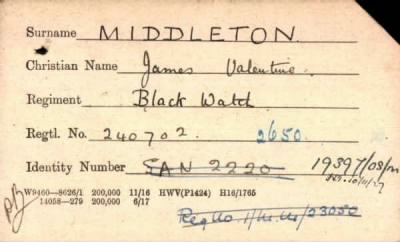 Surname MIDDLETON.
Christian Name James Valentine.
Regiment Black Watch
Regtl. No. 240702. 2650.
Identity Number SAN 2220 19397/08/
W9460—8626/1 200,000 11/16 HWV(P1424) H16/1765
14058—279 200,000 6/17
Reg No 1/M.M./23050